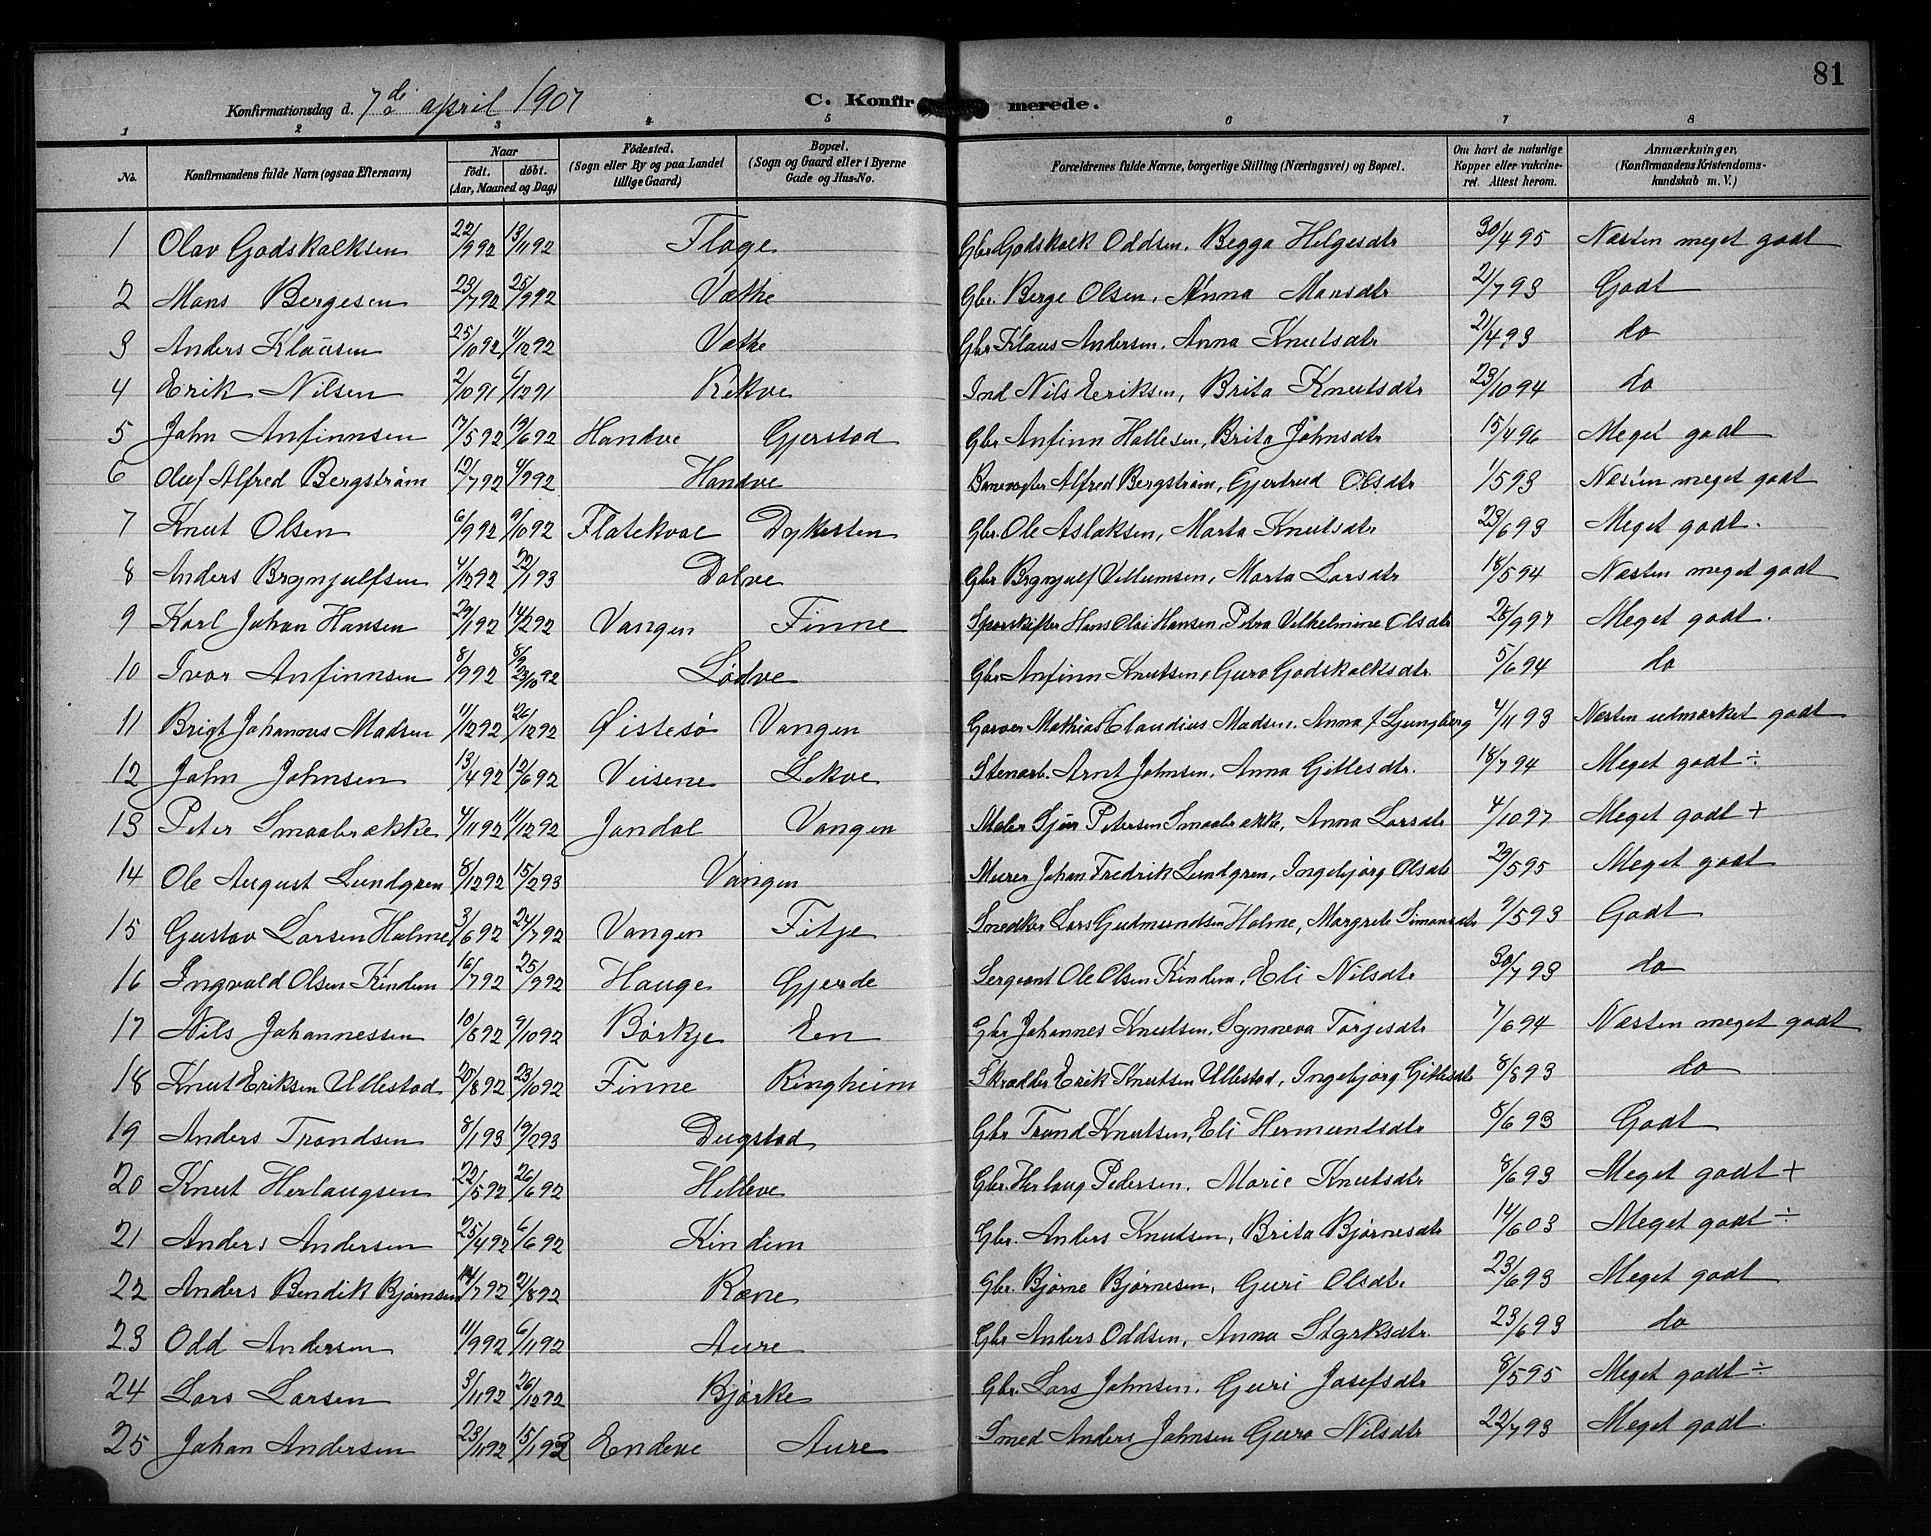 81
Konfirmationsdag d. 7de april 1907 C. Konfirmerede.
1 2 3 4 5 6 7 8
No. Konfirmandens fulde Navn (ogsaa Efternavn) Naar født. døbt. (Aar, Maaned og Dag) Fødested. (Sogn eller By og paa Landet tillige Gaard) Bopæl. (Sogn og Gaard eller i Byerne Gade og Hus-No. Forældrenes fulde Navne, borgerlige Stilling (Næringsvei) og Bopæl. Om havt de naturlige Kopper eller vakcineret. Attest herom. Anmærkninger. (Konfirmandens Kristendomskundskab m. V.)
1 Olav Godskalksen 22/9 92 13/11 92 Flage Gbr. Godskalk Oddsen, Begga Helgesdtr 30/4 95 Næsten meget godt
2 Mons Bergesen 23/7 92 25/9 92 Væthe Gbr. Berge Olsen, Anna Monsdtr 21/7 93 Godt
3 Anders Klausen 25/10 92 11/12 92 Væthe Gbr Klaus Andersen, Anna Knutsdtr 21/4 93 do
4 Erik Nilsen 2/10 91 6/12 91 Rekve Ind Nils Eriksen, Brita Knutsdtr 23/10 94 do
5 John Anfinnsen 17/5 92 19/6 92 Handve Gjerstad Gbr Anfinn Hallesen, Brita Johnsdtr 15/4 96 Meget godt
6 Oluf Alfred Bergstrøm 12/7 92 4/9 92 Handve Banevogter Alfred Bergstrøm, Gjertrud Olsdtr 1/5 93 Næsten meget godt
7 Knut Olsen 6/9 92 9/10 92 Flatekval Dykesten Gbr. Ole Aslaksen, Marta Knutsdtr 23/6 93 Meget godt.
8 Anders Brynjulfsen 4/12 92 22/1 93 Dolve Gbr Brynjulf Villumsen, Marta Larsdtr 18/5 94 Næsten meget godt
9 Karl Johan Hansen 29/1 92 14/2 92 Vangen Finne Sporskifter Hans Olai Hansen, Petra Vilhelmine Olsdtr 28/9 97 Meget godt.
10 Ivar Anfinnsen 8/9 92 8/9 23/10 92 Lødve Gbr Anfinn Knutsen, Guro Godskalksdtr. 5/6 94 do
11 Brigt Johannes Madsen 11/12 92 26/12 92 Østesø Vangen Garver Mathias Claudius Madsen, Anna f Ljungberg 4/11 93 Næsten udmærket godt
12 John Johnsen 13/4 92 12/6 92 Veisene Lekve Stenarb. Arnt Johnsen, Anna Gitlesdtr. 18/7 94 Meget godt ÷
13 Peter Smaabrække 4/11 92 11/12 92 Jondal Vangen Maler Sjur Petersen Smaabrække, Anna Larsdtr 4/10 97 Meget godt +
14 Ole August Lundgren 8/12 92 15/2 93 Vangen Murer Johan Fredrik Lundgren, Ingebjørg Olsdtr 29/5 95 Meget godt
15 Gustav Larsen Holme 3/6 92 24/7 92 Vangen Fitje Snedker Lars Gudmundsen Holme, Margrete Simonsdtr 9/5 93 Godt
16 Ingvald Olsen Kindem 16/7 92 25/9 92 Hauge Gjerde Sergeant Ole Olsen Kindem, Eli Nilsdtr 30/7 93 do
17 Nils Johannessen 10/8 92 9/10 92 Børkje Een Gbr Johannes Knutsen, Synneva Torjesdtr 7/6 94 Næsten meget godt
18 Knut Eriksen Ullestad 20/8 92 23/10 92 Finne Ringheim Skrædder Erik Knutsen Ullestad, Ingebjørg Gitlesdtr 8/8 93 do
19 Anders Trondsen 8/1 93 19/2 93 Dugstad Gbr Trond Knutsen, Eli Hermundsdtr 8/6 93 Godt
20 Knut Herlaugsen 22/5 92 26/6 92 Helleve Gbr. Herlaug Pedersen, Marie Knutsdtr 8/6 93 Meget godt +
21 Anders Andersen 25/4 92 6/6 92 Kindem Gbr. Anders Knutsen, Brita Bjørnesdtr 14/6 03 Meget godt ÷
22 Anders Bendik Bjørnsen 14/7 92 21/8 92 Rene Gbr. Bjørne Bjørnesen, Guri Olsdtr 23/6 93 Meget godt
23 Odd Andersen 11/9 92 6/11 92 Aure Gbr Anders Oddsen, Anna Styrksdtr. 23/6 93 do
24 Lars Larsen 3/11 92 26/12 92 Bjørke Gbr. Lars Johnsen, Guri Josefsdtr 8/5 95 Meget godt ÷
25 Johan Andersen 23/11 92 15/1 93 Endeve Aure Smed Anders Johnsen Guro Nilsdtr 22/7 93 Meget godt.